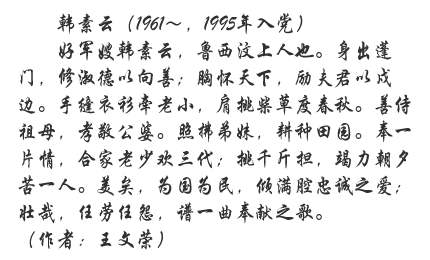 韩素云（1961～，1995年入党）
好军嫂韩素云，鲁西汶上人也。身出蓬
门，修淑德以向善；胸怀天下，励夫君以戍
边。手缝衣衫牵老小，肩挑柴草度春秋。善侍
祖母，孝敬公婆。照拂弟妹，耕种田园。奉一
片情，合家老少欢三代；挑千斤担，竭力朝夕
苦一人。美矣，为国为民，倾满腔忠诚之爱；
壮哉，任劳任怨，谱一曲奉献之歌。
（作者：王文荣）